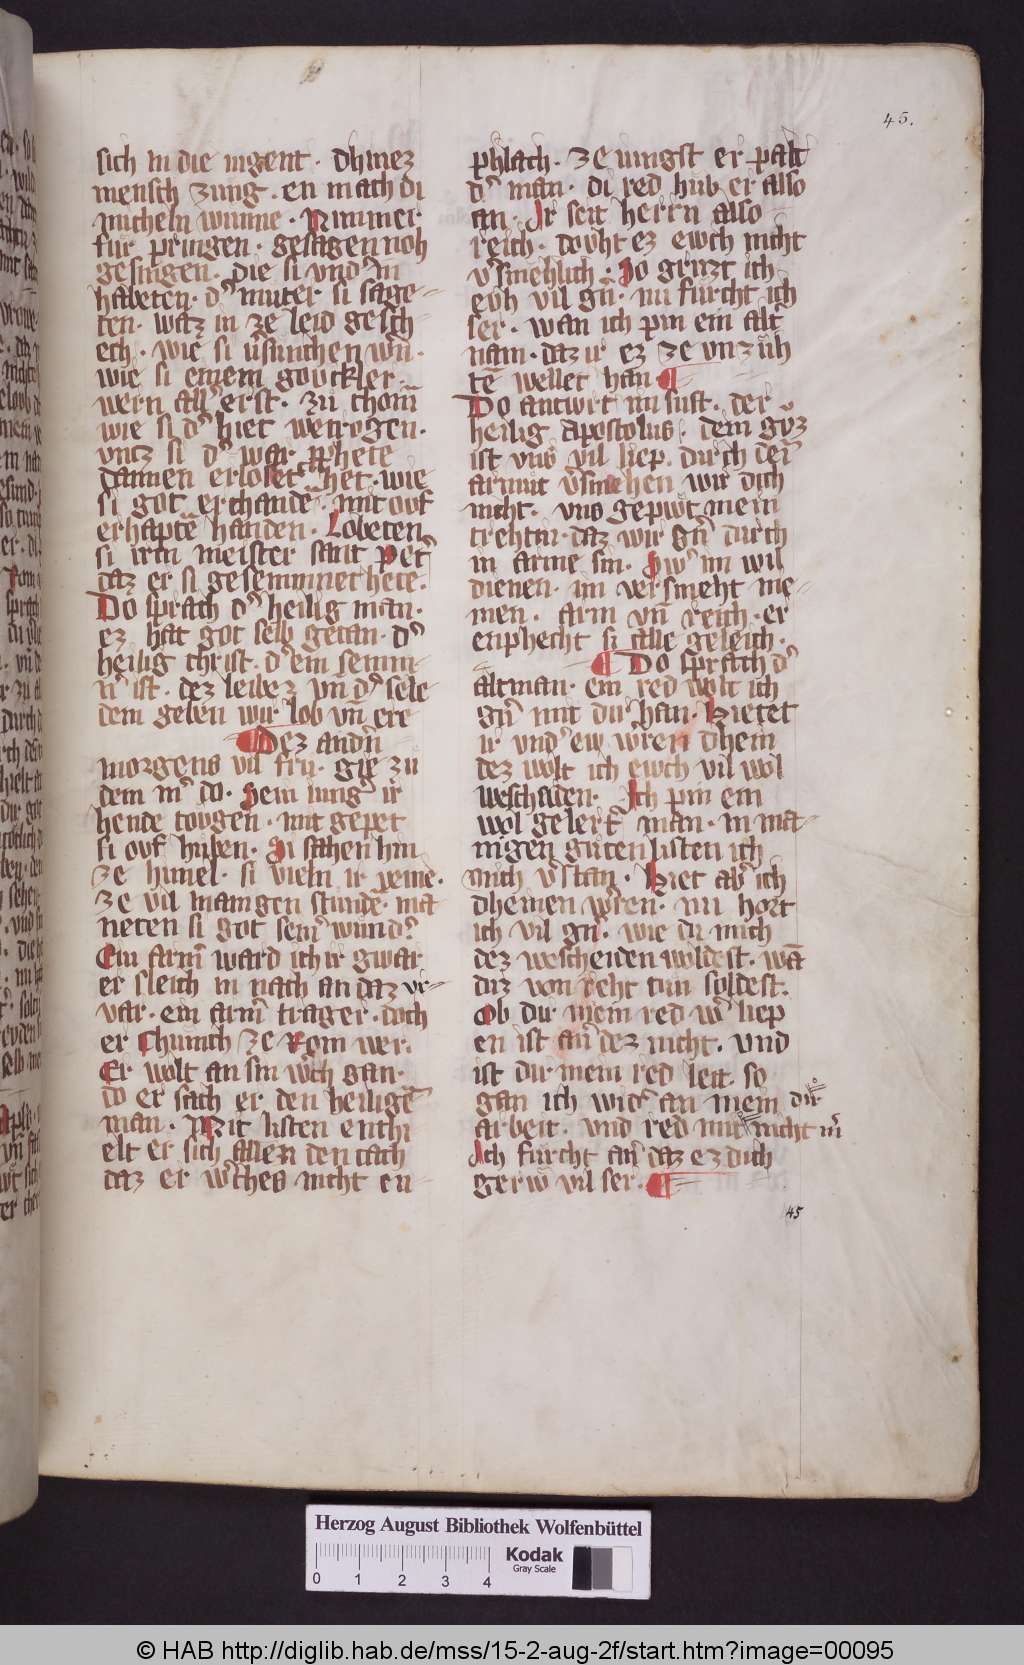 45.
sich in die mgent · dhinez
mensch zung · en mach di
micheln wunne · Nimmer
fur pringen · gesagen noh
gesingen · die si vnder in
habeten · der muter si sage-
ten · waz in ze leid gesch
ech · wie si versunchen wern ·
wie si einem gouckler ·
wern aller erst · zu chom̄
wie si der hiet wetrogen ·
vntz si der war · pphete
dannen erloset het · wie
si got erchande · mit ouf
erhapten handen · Lobeten
si irm meister sant Peter
daz er si gesemmnet hete ·
Do sprach der heilig man ·
ez hat got selb getan · der
heilig christ · der ein semm-
ner ist · dez leibez vnd der sele
dem geben wir lob vn̄ ere
Dez andern
morgens vil fru · gie zu
dem mer do · Sein iunger ir
hende tougen · mit gepet
si ouf huben · Si sahen hin
ze himel · si vieln ir peine ·
ze vil manigen stunde · ma
neten si got seiner wunder
Ein farmer ward ich ir gwar
er sleich in nach an daz vr-
var · ein armer trager · doch
er chumch ze Rom wer ·
Er wolt an sin werch gan ·
do er sach er den heiligen
man · Mit listen enthi
elt er sich allen den tach
daz er werches nicht en-
phlach · ze iungst er palt
der man · di red hub er also
an · Ir seit herrn also
reich · douht ez ewch nicht
versmehlich · So gruzt ich
evh vil gern · nu furcht ich
ser · wan ich pin ein alter
nam · daz ir ez ze vnzuh
ten wellet han
Do antwrt im sust · der
heilig Apostolus · dem guz
ist vns vil liep · durch dein
armut versmehen wir dich
nicht · vns gepiut mein
trehtin · daz wir gern durch
in arme sin · Swer im wil
dienen · im versmeht nie-
men · arm vn̄ reich · er
enphecht si alle geleich ·
Do sprach der
altman · ein red wolt ich
gern mit dir han · Hietet
ir vnder ew wren dhein
dez wolt ich ewch vil wol
weschaiden · Ich pin ein
wol gelert man · in ma-
nigen guten listen ich
mich verstan · Hiet aber ich
dheinen wren · nu hort
ich vil gern · wie du mich
dez wescheiden woldest · wan̄
duz von reht tun soldest ·
Ob dir mein red wer liep
en ist aner dez nicht · vnd
ist dir mein red leit · so
gan ich wider an mein
arbeit · vnd red mit dir nicht mer
Ich furcht aner daz ez dich
gerw vil ser ·
45
Herzog August Bibliothek Wolfenbüttel
0 1 2 3 4
Kodak
Gray Scale
© HAB http://diglib.hab.de/mss/15-2-aug-2f/start.htm?image=00095